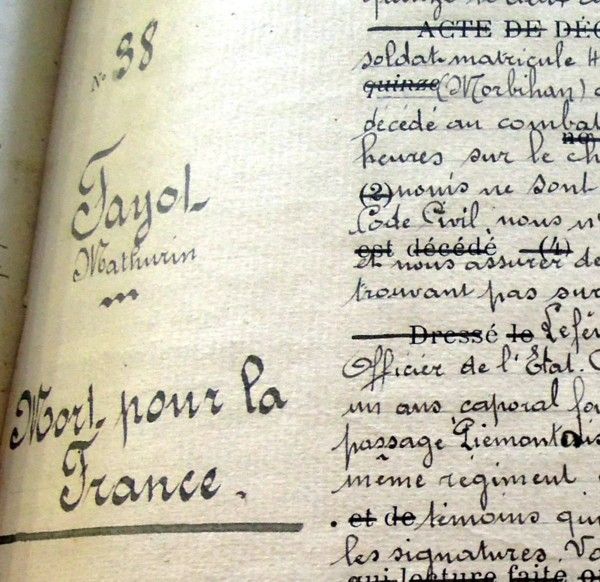 N° 38
Fayol
Mathurin
Mort pour la
France.
ACTE DE DÉC
soldat matricule
quinze (Morbihan)
décédé au combat
heures sur le
(2) nous ne sont
Code Civil, nous n'
est décédé (4)
et nous assurer de
trouvant pas sur
Dressé le
Officier de l'État.
un ans, caporal
passage Piémont
même régiment
et de témoins qui
les signatures.
qui lecture faite